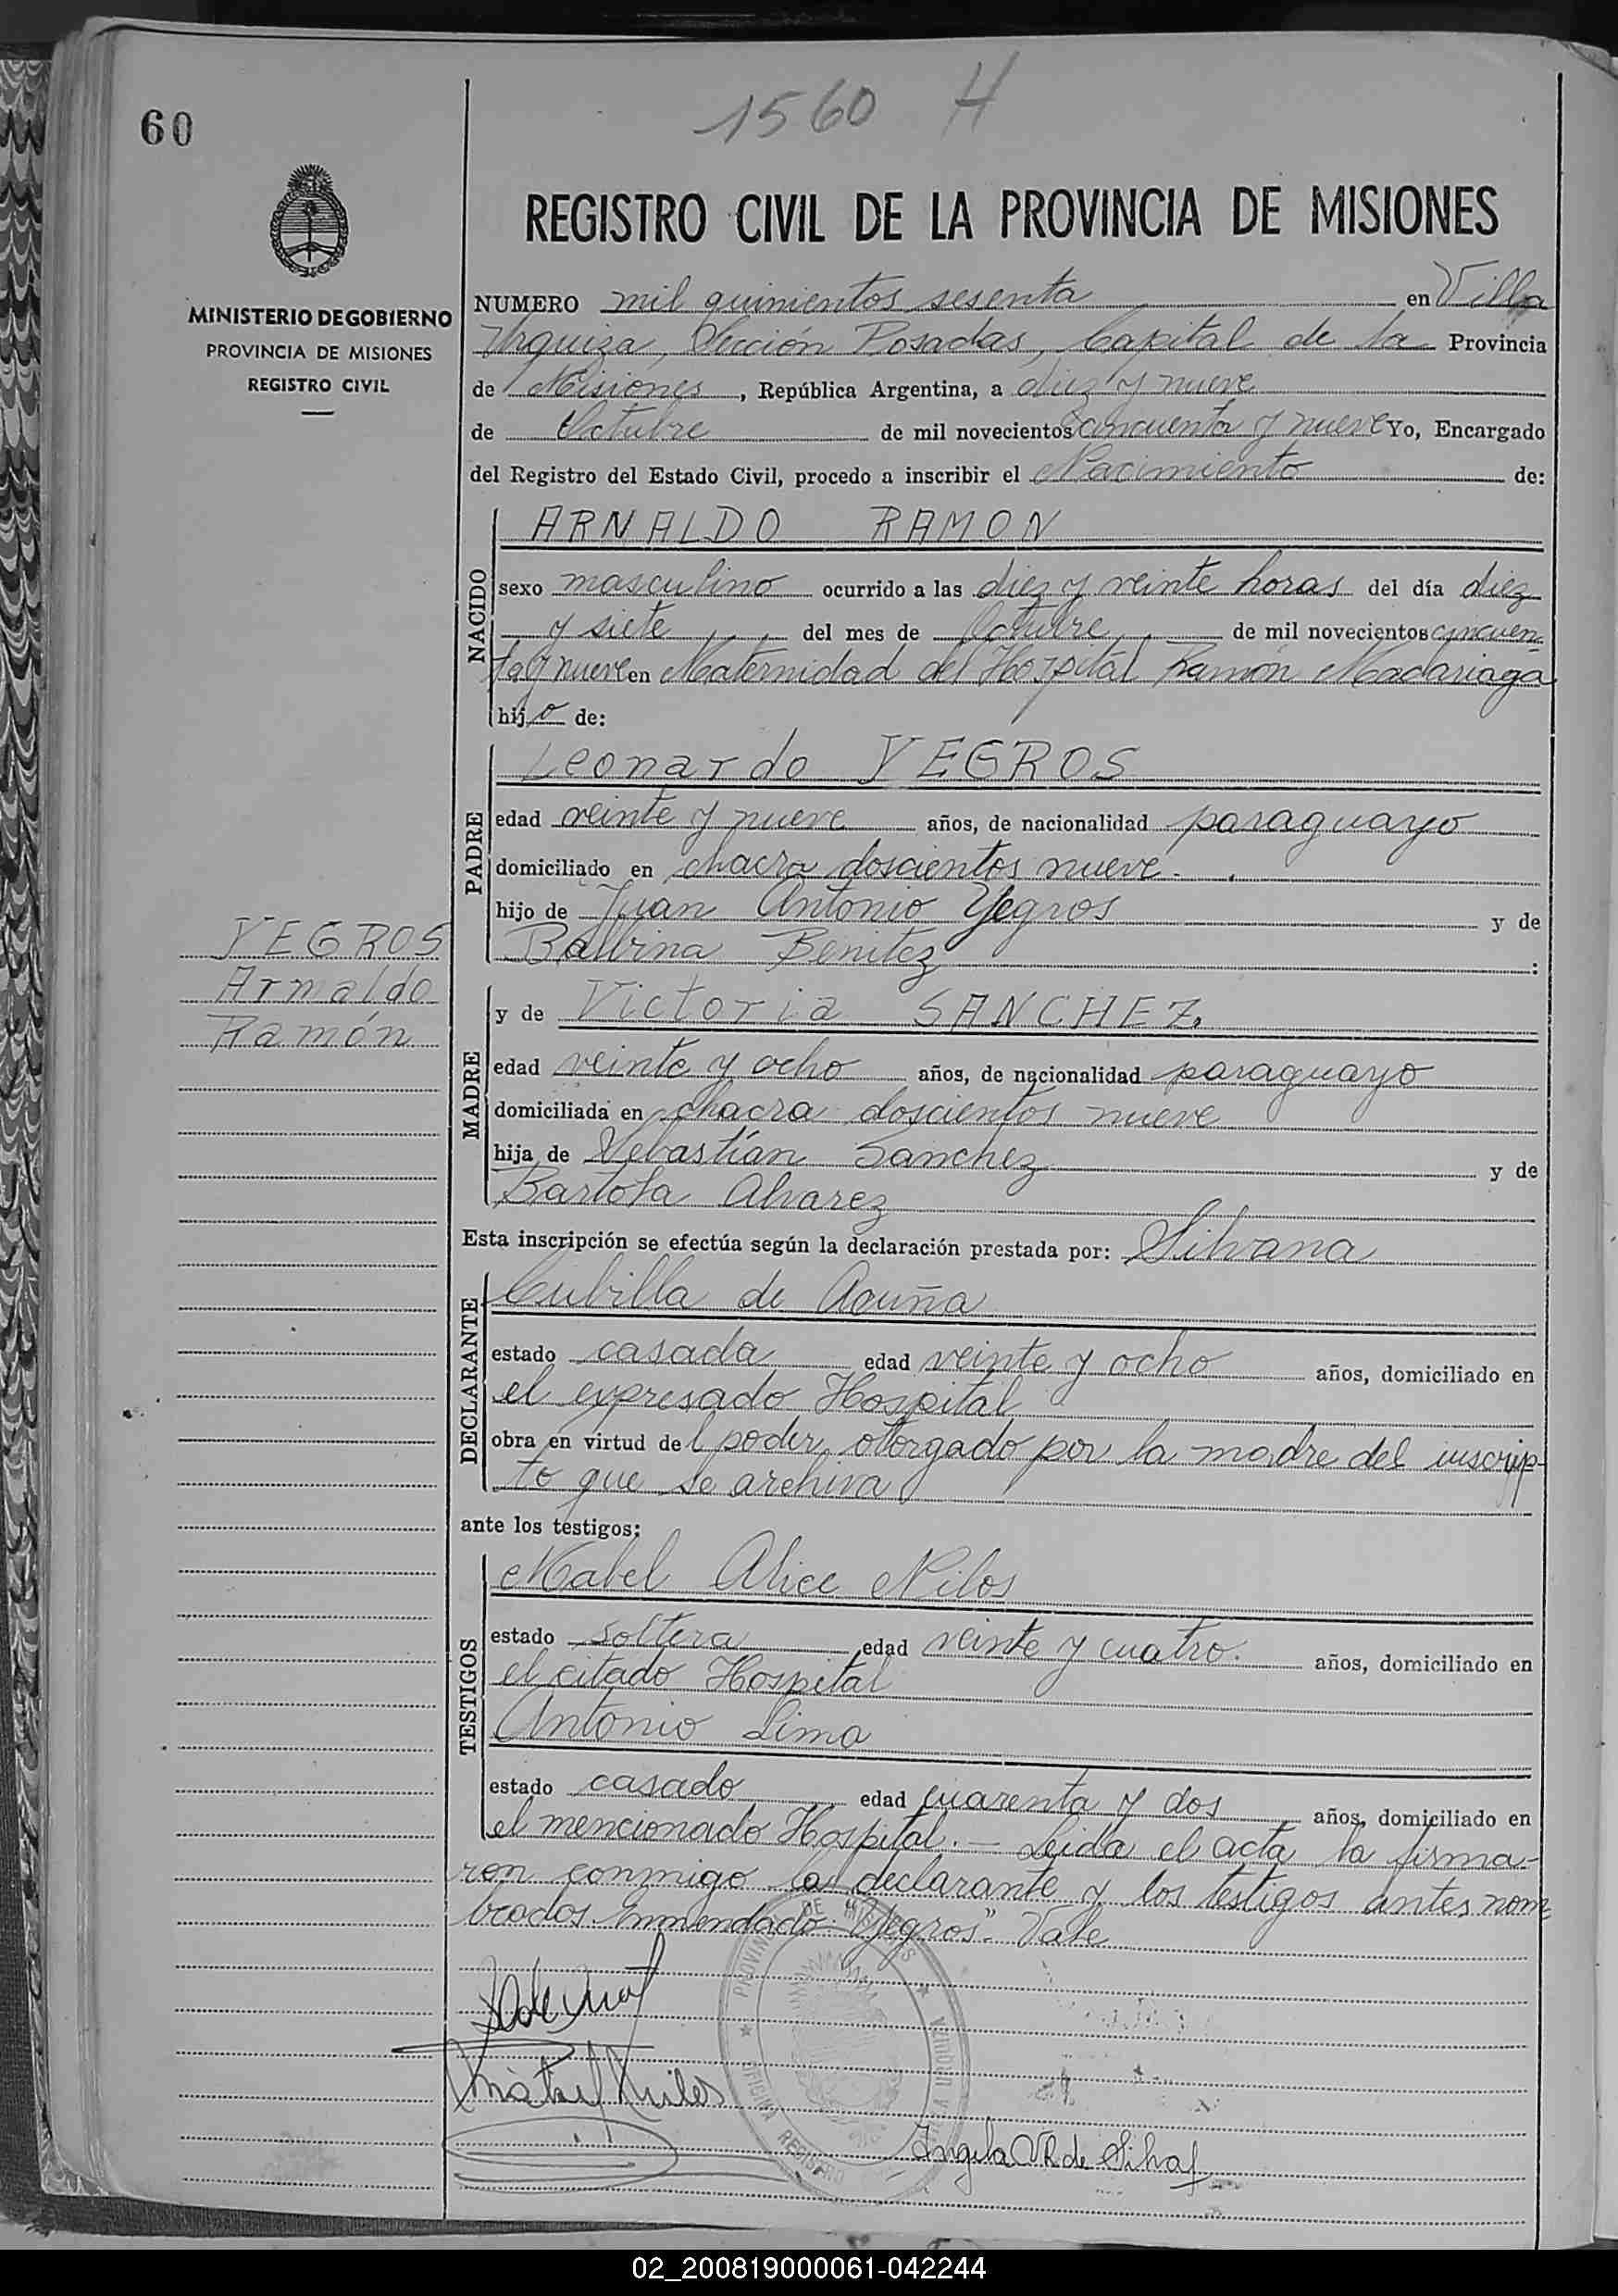 60
1560 H
REGISTRO CIVIL DE LA PROVINCIA DE MISIONES
MINISTERIO DE GOBIERNO
PROVINCIA DE MISIONES
REGISTRO CIVIL
NUMERO mil quinientos sesenta en Villa
Urquiza, Sección Posadas, Capital de la Provincia
de Misiones, República Argentina, a diez y nueve
de Octubre de mil novecientos cincuenta y nueve Yo, Encargado
del Registro del Estado Civil, procedo a inscribir el Nacimiento de:
NACIDO
ARNALDO RAMON
sexo masculino ocurrido a las diez y veinte horas del día diez
y siete del mes de Octubre de mil novecientos cincuen-
ta y nueve en Maternidad del Hospital Ramón Madariaga
hijo de:
PADRE
Leonardo YEGROS
edad veinte y nueve años, de nacionalidad paraguayo
domiciliado en chacra doscientos nueve.
hijo de Juan Antonio Yegros y de
Balbina Benitez :
YEGROS
Arnaldo
Ramón
MADRE
y de Victoria SANCHEZ
edad veinte y ocho años, de nacionalidad paraguayo
domiciliada en chacra doscientos nueve
hija de Sebastián Sanchez y de
Bartola Alvarez
Esta inscripción se efectúa según la declaración prestada por: Silvana
DECLARANTE
Cubilla de Acuña
estado casada edad veinte y ocho años, domiciliado en
el expresado Hospital
obra en virtud del poder otorgado por la madre del inscrip-
to que se archiva
ante los testigos:
TESTIGOS
Mabel Alice Nilos
estado soltera edad veinte y cuatro. años, domiciliado en
el citado Hospital
Antonio Lima
estado casado edad cuarenta y dos años, domiciliado en
el mencionado Hospital.— Leida el acta la firma-
ron conmigo la declarante y los testigos antes nom-
brados. Enmendado "Yegros". Vale
PROVINCIA DE MISIONES
OFICINA REGISTRO
Angela V. R. de Silva
02_200819000061-042244